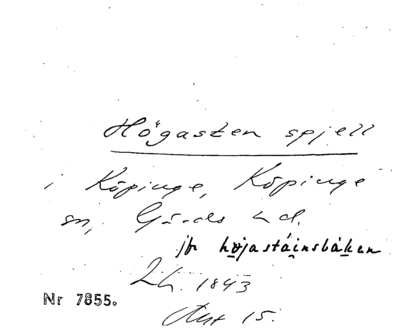 Högasten spjell
i Köpinge, Köpinge
sn, Gärds hd.
jfr højastáinsbáken
Lh. 1843
Akt 15.
Nr 7855.